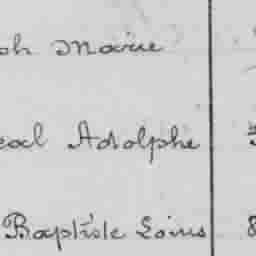 oh Marie
cal Adolphe
Baptiste Louis 8